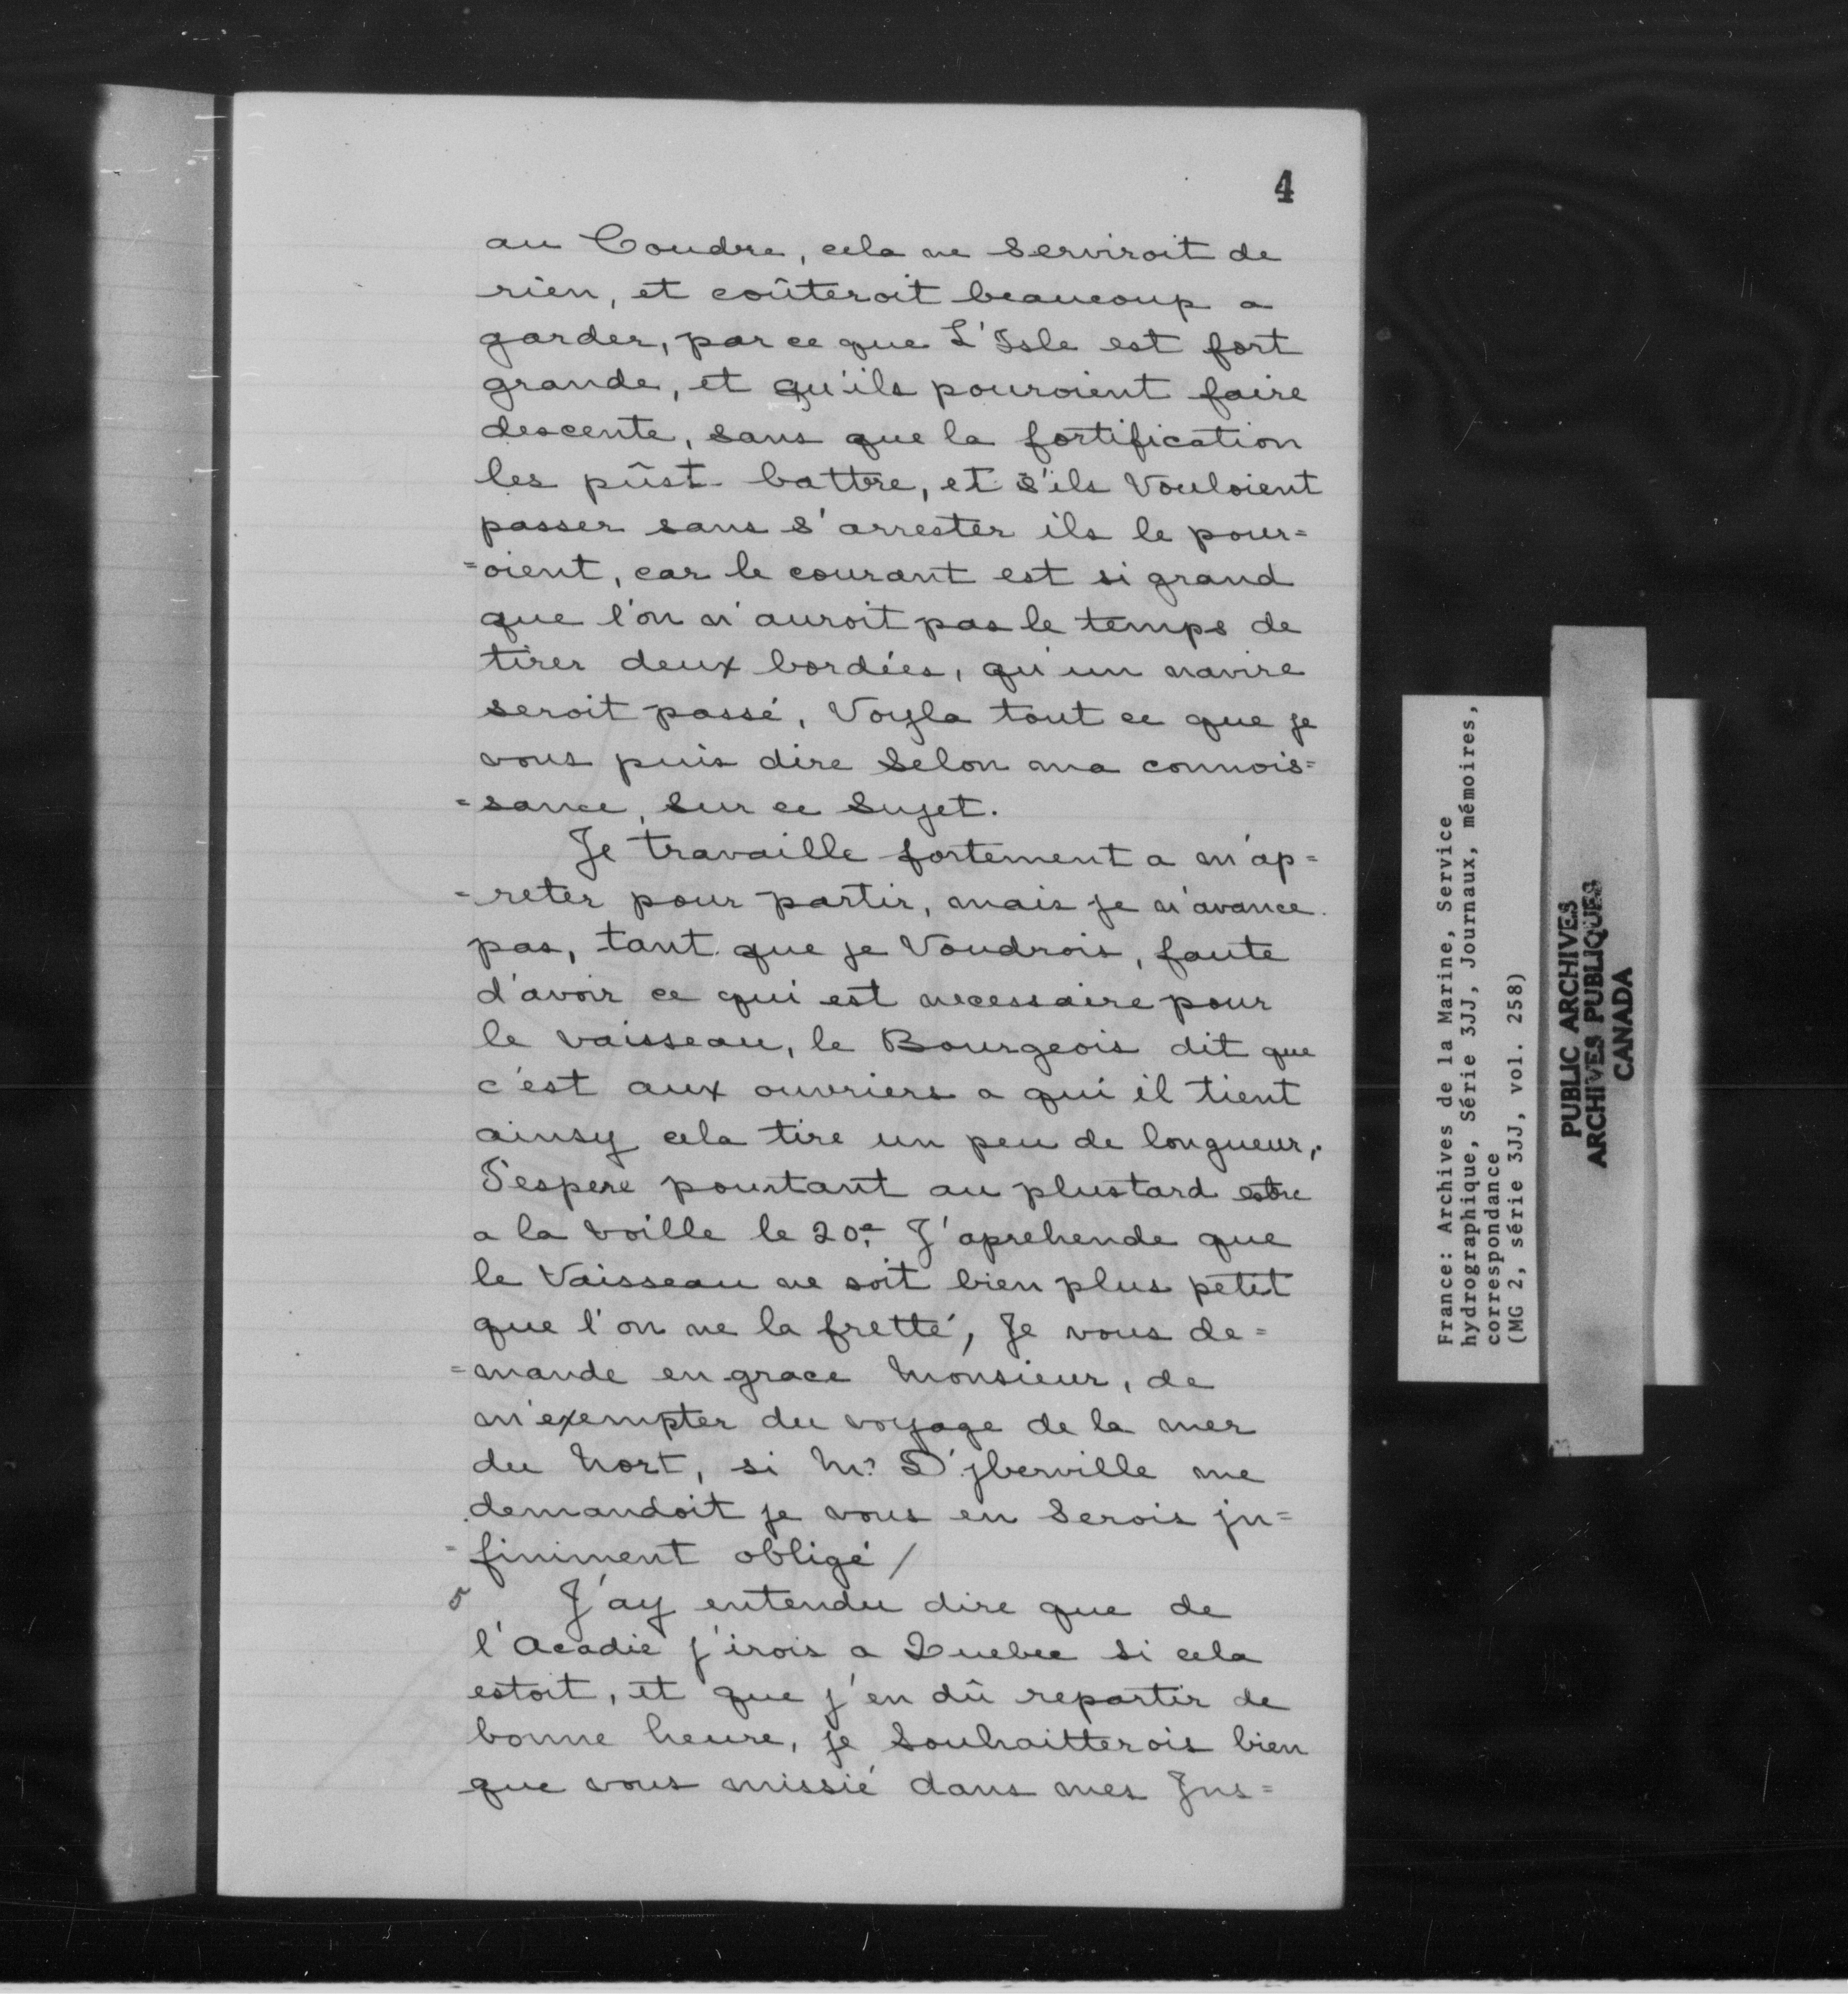 4
au Coudre, cela ne serviroit de
rien, et coûteroit beaucoup a
garder, par ce que L'Isle est fort
grande, et qu'ils pouroient faire
descente, sans que la fortification
les pûst battre, et s'ils Vouloient
passer sans s'arrester ils le pour=
=oient, car le courant est si grand
que l'on n'auroit pas le temps de
tirer deux bordées, qu'un navire
seroit passé, Voyla tout ce que je
vous puis dire selon ma connois=
=sance, sur ce sujet.
Je travaille fortement a m'ap=
=reter pour partir, mais je n'avance
pas, tant que je Voudrois, faute
d'avoir ce qui est necessaire pour
le vaisseau, le Bourgeois dit que
c'est aux ouvriers a qui il tient
ainsy cela tire un peu de longueur,
J'espere pourtant au plustard estre
a la voille le 20.e J'aprehende que
le Vaisseau ne soit bien plus petit
que l'on ne la fretté, Je vous de=
=mande en grace Monsieur, de
m'exempter du voyage de la mer
du Nort, si Mr. D'jberville me
demandoit je vous en serois jn=
=finiment obligé /
5 J'ay entendu dire que de
l'Acadie j'irois a Quebec si cela
estoit, et que j'en dû repartir de
bonne heure, je souhaitterois bien
que vous missié dans mes Jns=
France: Archives de la Marine, Service
hydrographique, Série 3JJ, Journaux, mémoires,
correspondance
(MG 2, série 3JJ, vol. 258)
PUBLIC ARCHIVES
ARCHIVES PUBLIQUES
CANADA